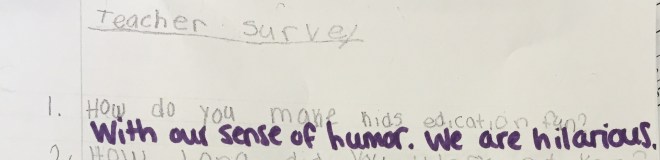 Teacher Survey
1. How do you make kids education fun?
With our sense of humor. We are hilarious.
2. How long did you